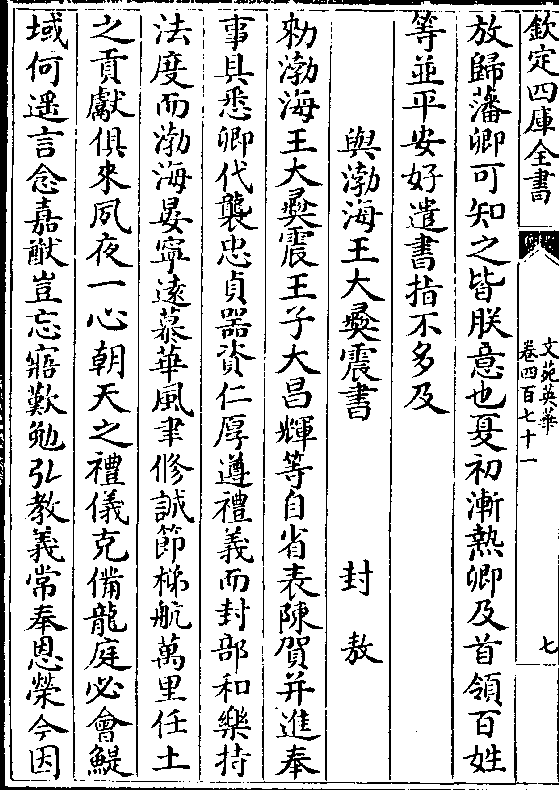 欽定四庫全書
文苑英華
卷四百七十一
七
放歸藩卿可知之皆朕意也夏初漸熱卿及首領百姓
等並平安好遣書指不多及
與渤海王大彝震書 封敖
勅渤海王大彝震王子大昌輝等自省表陳賀并進奉
事具悉卿代襲忠貞器資仁厚遵禮義而封部和樂持
法度而渤海晏寧遠慕華風聿修誠節梯航萬里任土
之貢獻俱來夙夜一心朝天之禮儀克備龍庭必會鯷
域何遥言念嘉猷豈忘寤歎勉弘教義常奉恩榮今因